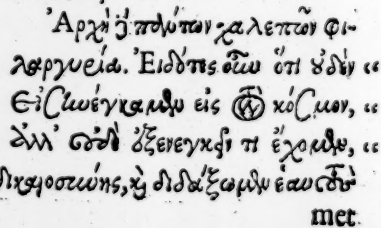 Ἀρχὴ δὲ πάντων χαλεπῶν φι-
λαργυρία. Εἰδότες οὖν ὅτι οὐδὲν “
εἰσηνέγκαμεν εἰς τὸν κόσμον, “
ἀλλ' οὐδὲ ἐξενεγκεῖν τι ἔχομεν, “
δικαιοσύνης, καὶ διδάξωμεν ἑαυτοὺ
met